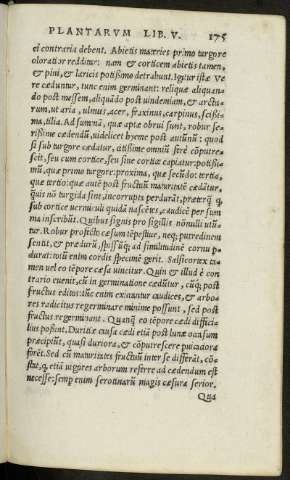 PLANTARVM LIB. V. 175
ei contraria debent. Abietis materies primo turgore
coloratior redditur: nam & corticem abietis tamen,
& pini, & laricis potissimo detrahunt. Igitur istæ Ve
re cæduntur, tunc enim germinant: reliquæ aliquan-
do post messem, aliquãdo post uindemiam, & arctu-
rum, ut aria, ulmus, acer, fraxinus, carpinus, scissi-
ma, tilia. Ad summã, quæ aptæ obrui sunt, robur se-
rissime cædendũ, uidelicet hyeme post autũnũ: quod
si sub turgore cædatur, citissime omniũ ferè cõputre-
scit, seu cum cortice, seu sine cortice capiatur: potissi-
mũ, quæ primo turgore: proxima, quæ secũdo: tertia,
quæ tertio: quæ autẽ post fructuũ maturitatẽ cædãtur,
quis nõ turgida sint, incorrupta perdurãt, præterq̃ q̃
sub cortice uermiculi quidã nascẽtes, caudicẽ per sum
ma inscribũt. Quibus signis pro sigillis nonulli utũ-
tur. Robur profecto cæsum tẽpestiue, neq; putredinem
sentit, & predurũ, spissũq; ad similitudinẽ cornu p-
durat: totũ enim cordis specimẽ gerit. Salsicortex ta
men uel eo tẽpore cæsa uincitur. Quin & illud è con
trario euenit, cũ in germinatione cædũtur, cũq; post
fructus editos: tũc enim exiccantur caudices, & arbo-
res radicitus regerminare minime possunt, sed post
fructus regerminant. Quanq̃ eo tẽpore cædi diffici-
lius possint. Duritiæ causa cædi etiã post lunæ occasum
præcipiũt, quasi duriora, & cõputrescere pauciora
forẽt. Sed cũ maturitates fructuũ inter se differãt, cõ-
stat, q̃ etiã uigores arborum referre ad cædendum est
necesse: semp enim serotinarũ magis cæsura serior.
Qua